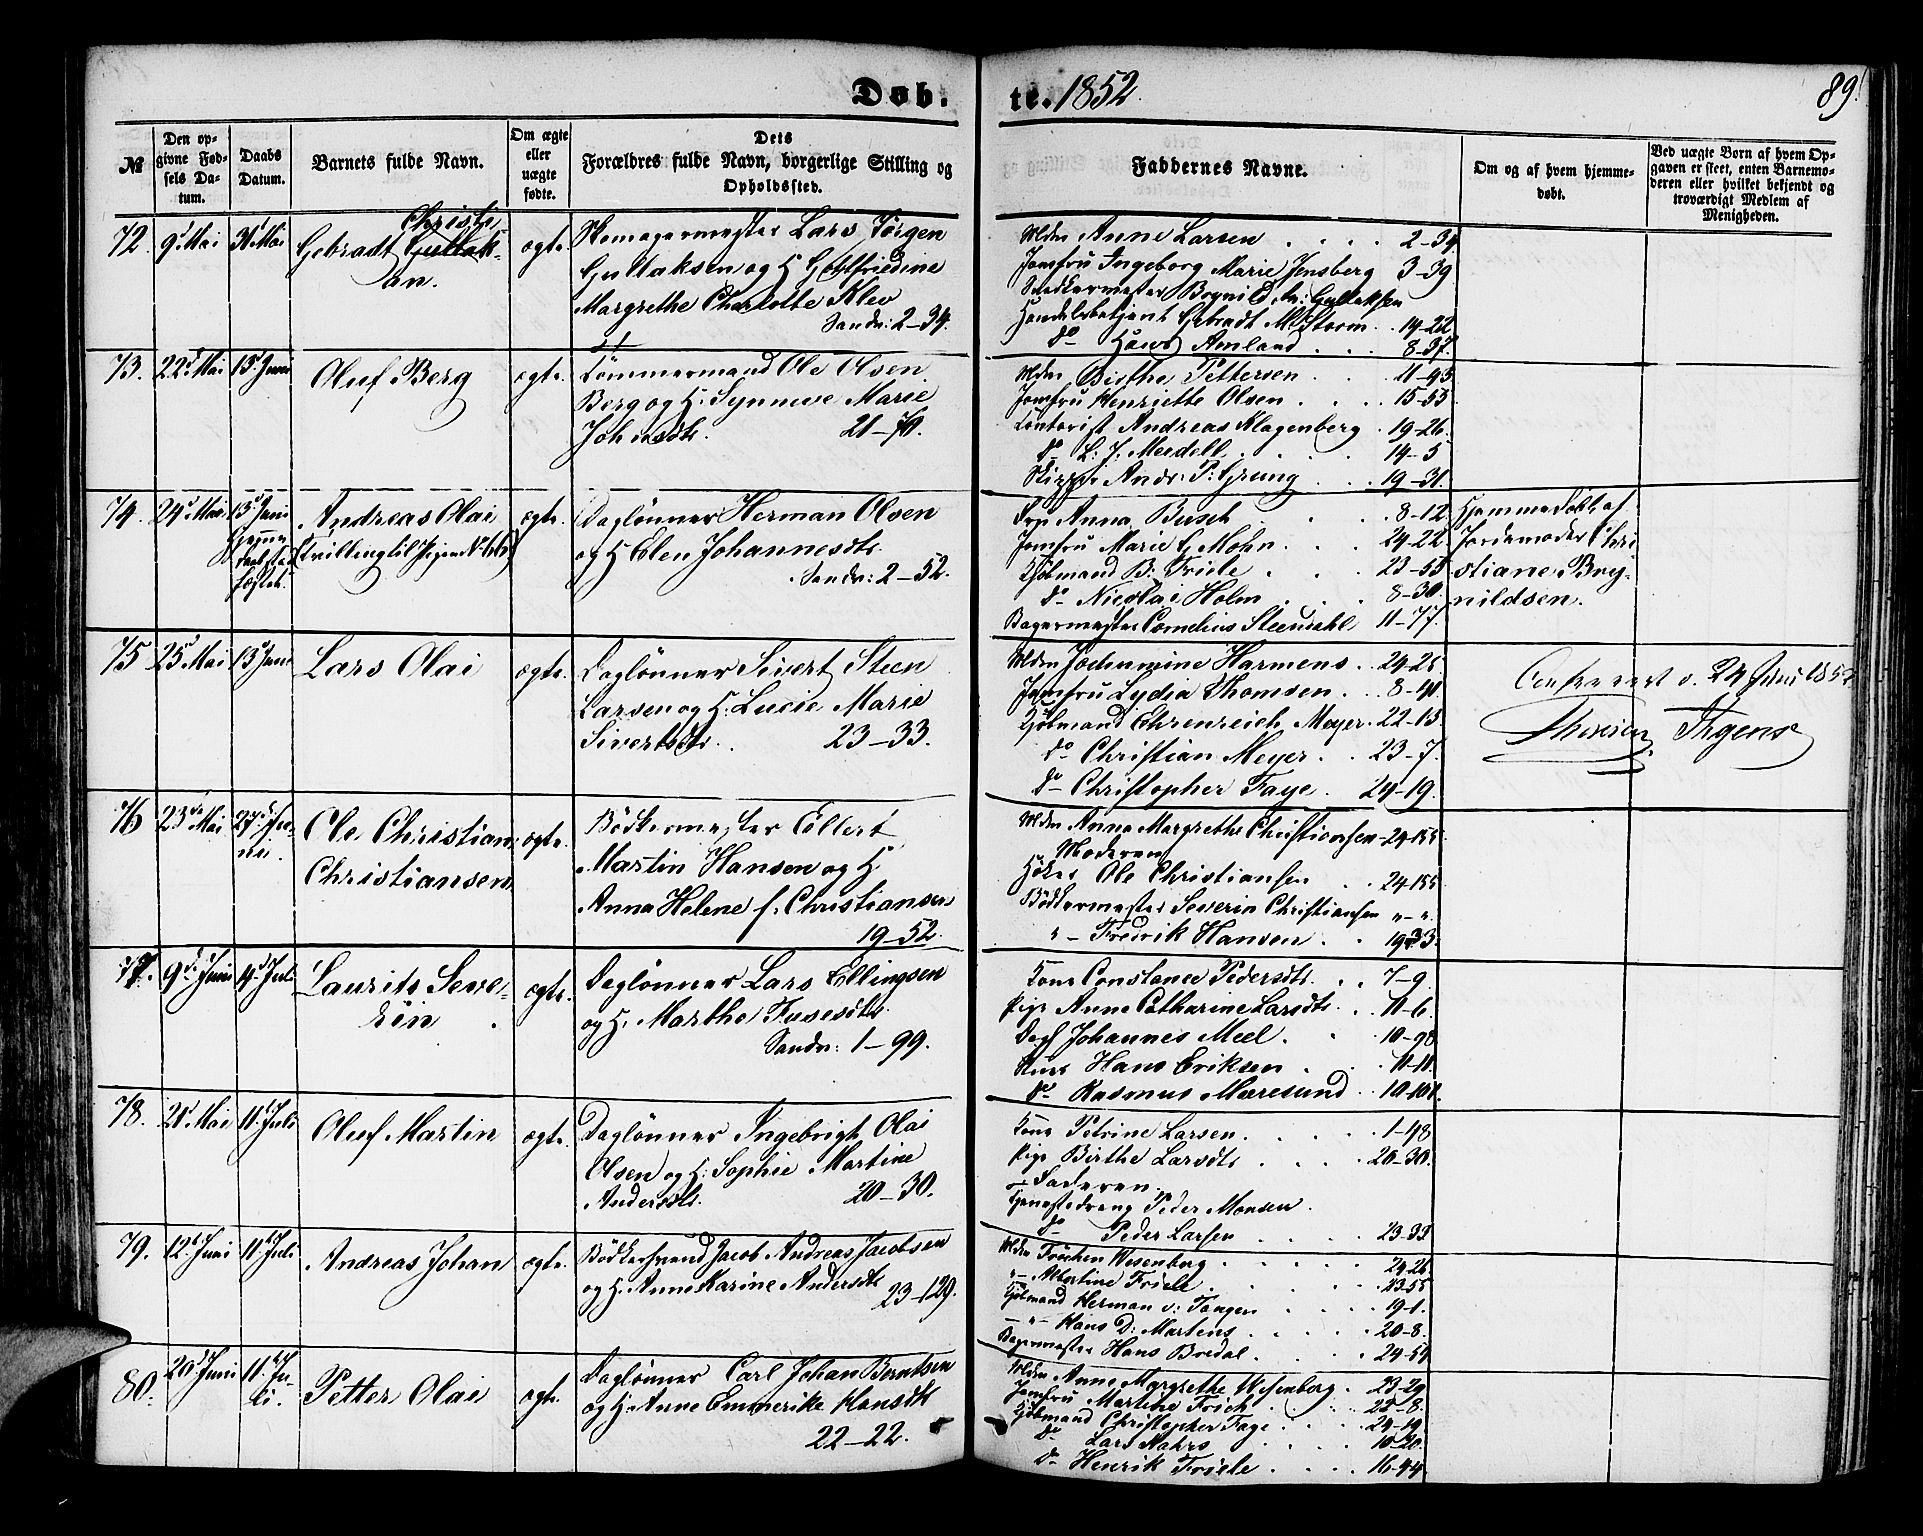 Døb.
te. 1852.
89.
№
Den op-
givne Fød-
sels Da-
tum.
Daabs
Datum.
Barnets fulde Navn.
Om ægte
eller
uægte
fødte.
Dets
Forældres fulde Navn, borgerlige Stilling og
Opholdssted.
Faddernes Navne.
Om og af hvem hjemme-
døbt.
Ved uægte Børn af hvem Op-
gaven er skeet, enten Barnemo-
deren eller hvilket bekjendt og
troværdigt Medlem af
Menigheden.
72. 9d Mai 31d Mai
Christi
Gebradt Gullak-
an.
ægte
Skomagermester Lars Jörgen
Gullaksen og H. Gottfriedine
Margrethe Charlotte Klev
Sandv: 2-34.
Mdm Anne Larsen 2-34
Jomfru Ingeborg Marie Jensberg 3-39
Snedkermester Brynild Gullaksen
Handelsbetjent Gebradt M. Storm 14-22
do Amland 8-37.
73. 22d Mai 13d Juni
Oluf Berg
ægte.
Tömmermand Ole Olsen
Berg og H: Synneve Marie
Johnsdtr. 21-70.
Mdm Birthe Pettersen 11-93
Jomfru Henriette Olsen 15-53
Contorist Andreas Klagenberg 19-26.
do L. J. Mendell 14-5
Skipper Andr. P: Grung 19-31.
74. 24d Mai 13d Juni
Hjemme
daab stad
fæstet.
Andreas Olai
(Tvilling til
ægte.
Daglönner Herman Olsen
og H. Elen Johannesdtr.
Sandv: 2-52.
Anna Busch 8-12
Jomfru Marie G. Mohn 24-22
Kjöbmand B: Friele 23-55
do Nicolai Holm 8-30.
Bagermester Cornelius Steensahl 11-77.
Hjemmedöbt af
Jordemoder Chri
stiane Bry-
nildsen.
75 25d Mai 13d Juni
Lars Olai
ægte.
Daglönner Sivert Steen
Larsen og H: Lucie Marie
Sivertsdtr. 23-33.
Mdm Jochumine Harmens 24-25
Jomfru Lydia Thomsen 8-41.
Kjöbmand Ehrenreich Meyer 22-13
do Christian Meyer 23-7.
do Christopher Faye. 24-19.
24 Juni 1852
Irgens
76 23d Mai 27d Ju-
ni.
Ole Christian
Christiansen
ægte.
Bödkermester Ellert
Martin Hansen og H
Anna Helene f. Christiansen
19-52.
Mdm Anna Margrethe Christiansen 24-155
Moderen
Höker Ole Christiansen 24-155
Bödkermester Severin Christiansen "-".
"- Fredrik Hansen 19-33.
77. 9d Juni 4d Juli
Laurits Seve-
rin
ægte.
Daglönner Lars Ellingsen
og H. Marthe Fusesdtr.
Sandv: 1-99.
Kone Constance Pedersdtr. 7-9
Pige Anne Catharine Larsdtr. 11-6.
Johannes Meel. 10-98
Hans Eriksen 11-11.
do Rasmus Mæresund 10-101.
78. 21d Mai 11d Juli
Oluf Martin
ægte.
Daglönner Ingebrigt Olai
Olsen og H: Sophie Martine
Andersdtr. 20-30.
Kone Petrine Larsen. 1-48
Pige Birthe Larsdtr 20-30.
Faderen.
Tjenestedreng Peder Monsen.
do Peder Larsen 23-33
79. 12d Juni 11d Juli
Andreas Johan
ægte.
Bödkersvend Jacob Andreas Jacobsen
og H. Anne Karine Andersdtr
23-129.
Mdm Fröchen Wesenberg 24-26
"- Martine Friele 23-55
Kjöbmand Herman v: Tangen 19-1.
"- Hans D: Martens 20-8.
Bagermester Hans Bredal. 24-54
80. 20d Juni 11d Ju-
li.
Petter Olai
ægte.
Daglönner Carl Johan Berntsen
og H. Anne Emmerike Hansdtr
22-22.
Mdm Anne Margrethe Wesenberg 23-29
Jomfru Martine Frich 23-8.
Kjöbmand Christopher Faye 24-19
do Lars Mahrs 10-20.
do Henrik Friele 16-44